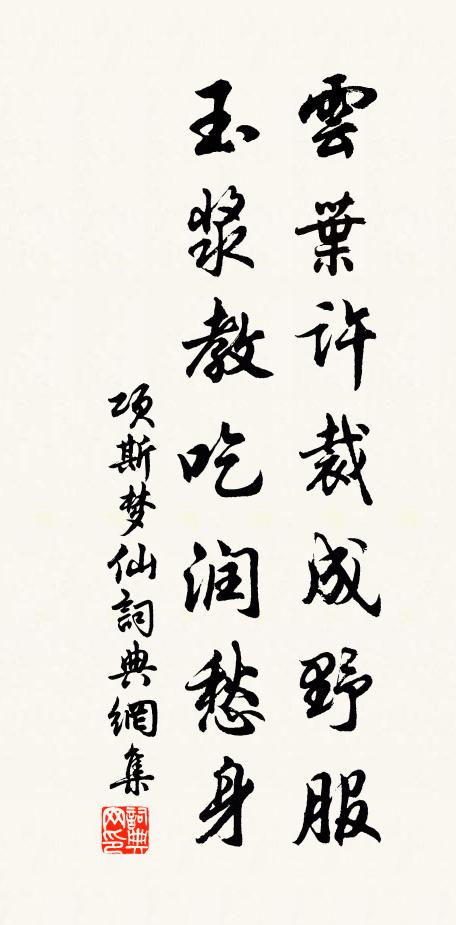 雲葉許裁成野服
玉漿教吃润愁身
项斯梦仙詞典網集
詞典网印